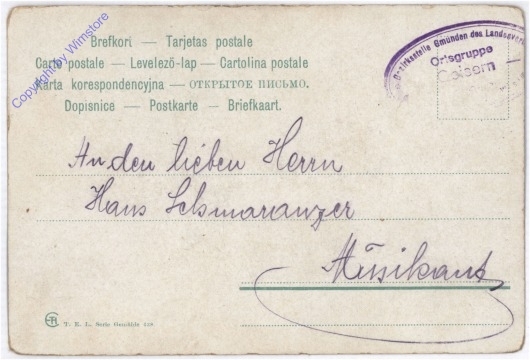 Copyright by Wimstore
Brefkort — Tarjetas postale
Carte postale — Levelező-lap — Cartolina postale
Karta korespondencyjna — ОТКРЫТОЕ ПИСЬМО.
Dopisnice — Postkarte — Briefkaart.
Bezirksstelle Gmunden des Landesver
Ortsgruppe
Goisern
An den lieben Herrn
Hans Schmaranzer
Musikant
T. R. L. Serie